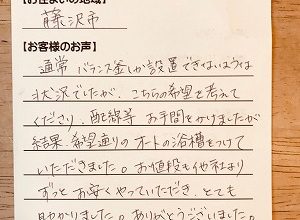 【お住まいの地域】
藤沢市
【お客様のお声】
通常 バランス釜しか設置できないような
状況でしたが、こちらの希望を考えて
くださり、配線等 お手間をかけましたが
結果、希望通りのオートの浴槽をつけて
いただきました。お値段も他社より
ずっとお安くやっていただき、とても
助かりました。ありがとうございました。